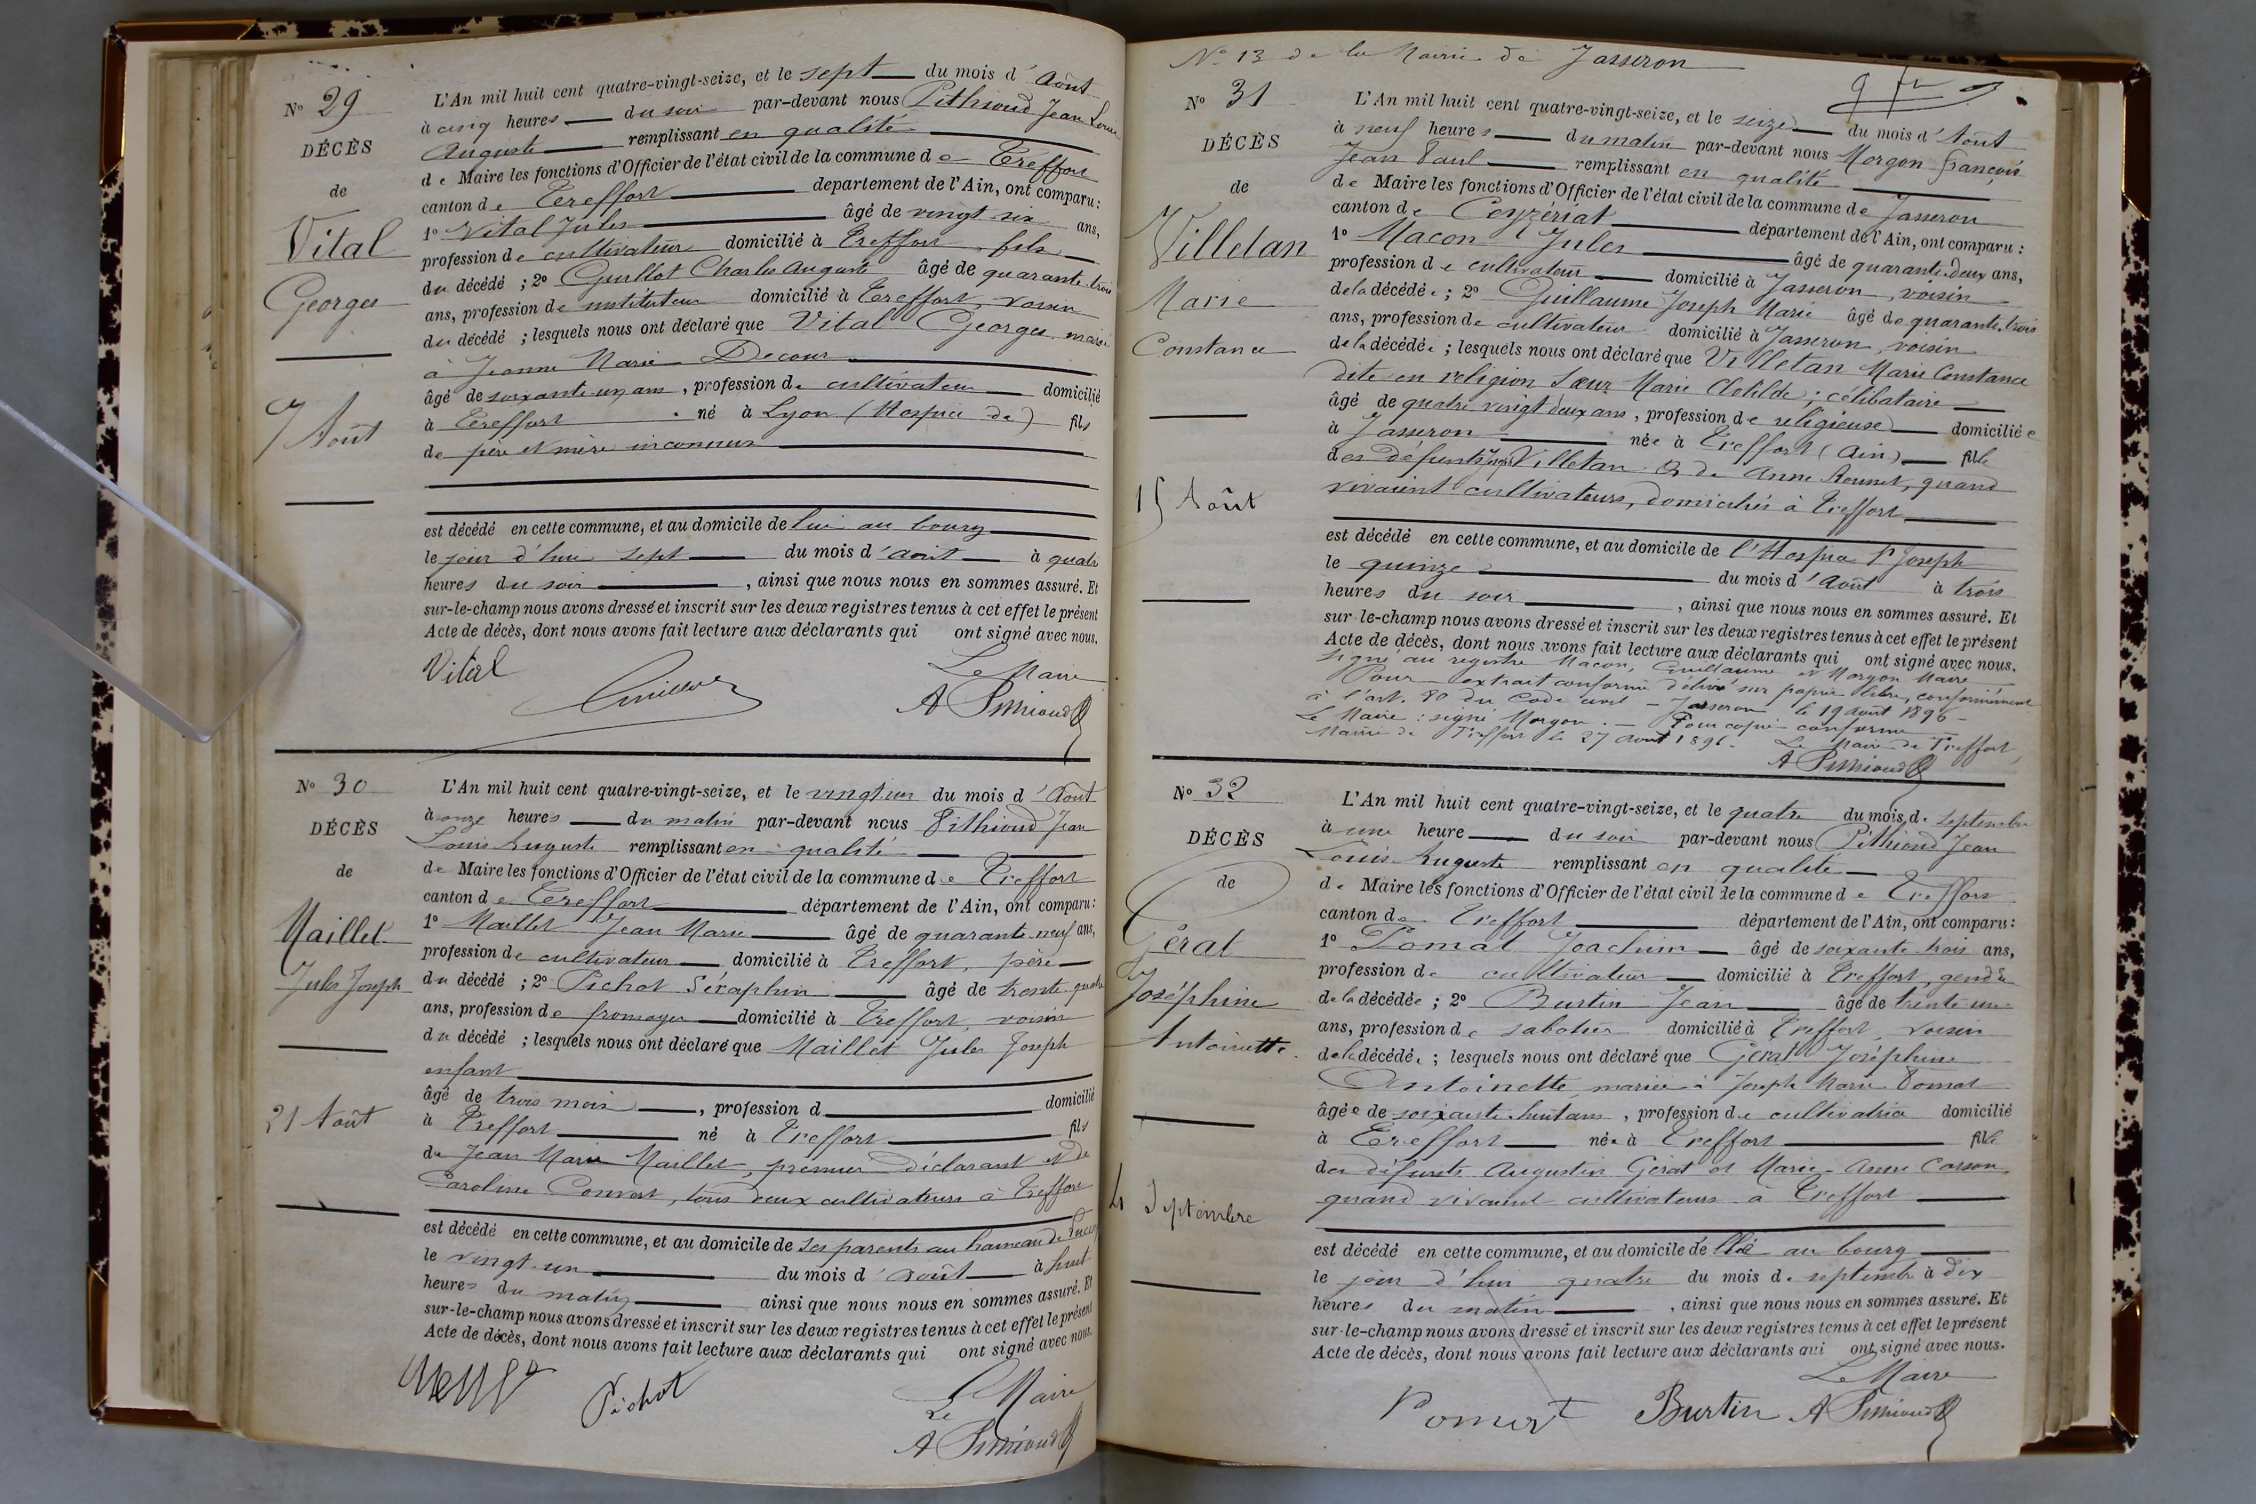 N° 29
DÉCÈS
de
Vital
Georges
7 Août
L'An mil huit cent quatre-vingt-seize, et le sept du mois d'Août
à cinq heures du soir par-devant nous Pithioud Jean Louis
Auguste remplissant en qualité
de Maire les fonctions d'Officier de l'état civil de la commune de Treffort
canton de Treffort département de l'Ain, ont comparu :
1° Vital Jules âgé de vingt six ans,
profession de cultivateur domicilié à Treffort, fils
du décédé ; 2° Guillot Charles Auguste âgé de quarante-trois
ans, profession de instituteur domicilié à Treffort, voisin
du décédé ; lesquels nous ont déclaré que Vital Georges, marié
à Jeanne Marie Decour
âgé de soixante-un ans, profession de cultivateur domicilié
à Treffort né à Lyon (Hospice de) fils
de père et mère inconnus
est décédé en cette commune, et au domicile de lui au bourg
le jour d'hui sept du mois d'août à quatre
heures du soir, ainsi que nous nous en sommes assuré. Et
sur-le-champ nous avons dressé et inscrit sur les deux registres tenus à cet effet le présent
Acte de décès, dont nous avons fait lecture aux déclarants qui ont signé avec nous.
Vital
Le Maire
A Pithioud
N° 30
DÉCÈS
de
Maillet
Jules Joseph
21 Août
L'An mil huit cent quatre-vingt-seize, et le vingt un du mois d'Août
à onze heures du matin par-devant nous Pithioud Jean
Louis Auguste remplissant en qualité
de Maire les fonctions d'Officier de l'état civil de la commune de Treffort
canton de Treffort département de l'Ain, ont comparu :
1° Maillet Jean Marie âgé de quarante-neuf ans,
profession de cultivateur domicilié à Treffort, père
du décédé ; 2° Pichot Séraphin âgé de trente-quatre
ans, profession de fromager domicilié à Treffort, voisin
du décédé ; lesquels nous ont déclaré que Maillet Jules Joseph
enfant
âgé de trois mois, profession d domicilié
à Treffort né à Treffort fils
de Jean Marie Maillet, premier déclarant et de
Caroline Convert, tous deux cultivateurs à Treffort
est décédé en cette commune, et au domicile de ses parents au hameau de
le vingt-un du mois d'août à huit
heures du matin ainsi que nous nous en sommes assuré. Et
sur-le-champ nous avons dressé et inscrit sur les deux registres tenus à cet effet le présent
Acte de décès, dont nous avons fait lecture aux déclarants qui ont signé avec nous.
Pichot
Le Maire
A Pithioud
N° 13 de la Mairie de Jasseron
N° 31
DÉCÈS
de
Villetan
Marie
Constance
15 Août
L'An mil huit cent quatre-vingt-seize, et le seize du mois d'Août
à neuf heures du matin par-devant nous Morgon François
Jean Paul remplissant en qualité
de Maire les fonctions d'Officier de l'état civil de la commune de Jasseron
canton de Ceyzériat département de l'Ain, ont comparu :
1° Macon Jules âgé de quarante-deux ans,
profession de cultivateur domicilié à Jasseron, voisin
de la décédée ; 2° Guillaume Joseph Marie âgé de quarante-trois
ans, profession de cultivateur domicilié à Jasseron, voisin
de la décédée ; lesquels nous ont déclaré que Villetan Marie Constance
dite en religion Sœur Marie Clotilde ; célibataire
âgé de quatre vingt deux ans, profession de religieuse domiciliée
à Jasseron née à Treffort (Ain) fille
des défunts Villetan & de Anne Rounet, quand
vivaient cultivateurs, domiciliés à Treffort
est décédé en cette commune, et au domicile de l'Hospice St Joseph
le quinze du mois d'Août à trois
heures du soir, ainsi que nous nous en sommes assuré. Et
sur le-champ nous avons dressé et inscrit sur les deux registres tenus à cet effet le présent
Acte de décès, dont nous avons fait lecture aux déclarants qui ont signé avec nous.
Signé au registre Macon, Guillaume et Morgon Maire
Pour extrait conforme délivré sur papier libre, conformément
à l'art. 80 du Code civil - Jasseron le 19 août 1896 -
Le Maire : signé Morgon. - Pour copie conforme
Mairie de Treffort le 27 août 1896. Le Maire de Treffort,
A Pithioud
N° 32
DÉCÈS
de
Gérat
Joséphine
Antoinette.
4 Septembre
L'An mil huit cent quatre-vingt-seize, et le quatre du mois de septembre
à une heure du soir par-devant nous Pithioud Jean
Louis Auguste remplissant en qualité
de Maire les fonctions d'Officier de l'état civil de la commune de Treffort
canton de Treffort département de l'Ain, ont comparu :
1° Pomat Joachim âgé de soixante trois ans,
profession de cultivateur domicilié à Treffort, gendre
de la décédée ; 2° Burtin Jean âgé de trente un
ans, profession de sabotier domicilié à Treffort, voisin
de la décédée ; lesquels nous ont déclaré que Gérat Joséphine
Antoinette mariée à Joseph Marie Pomat
âgée de soixante-huit ans, profession de cultivatrice domicilié
à Treffort née à Treffort fille
des défunts Augustin Gérat et Marie-Anne Carron,
quand vivaient cultivateurs à Treffort
est décédé en cette commune, et au domicile de au bourg
le jour d'hui quatre du mois de septembre à dix
heures du matin, ainsi que nous nous en sommes assuré. Et
sur-le-champ nous avons dressé et inscrit sur les deux registres tenus à cet effet le présent
Acte de décès, dont nous avons fait lecture aux déclarants qui ont signé avec nous.
Le Maire
Pomat Burtin A Pithioud